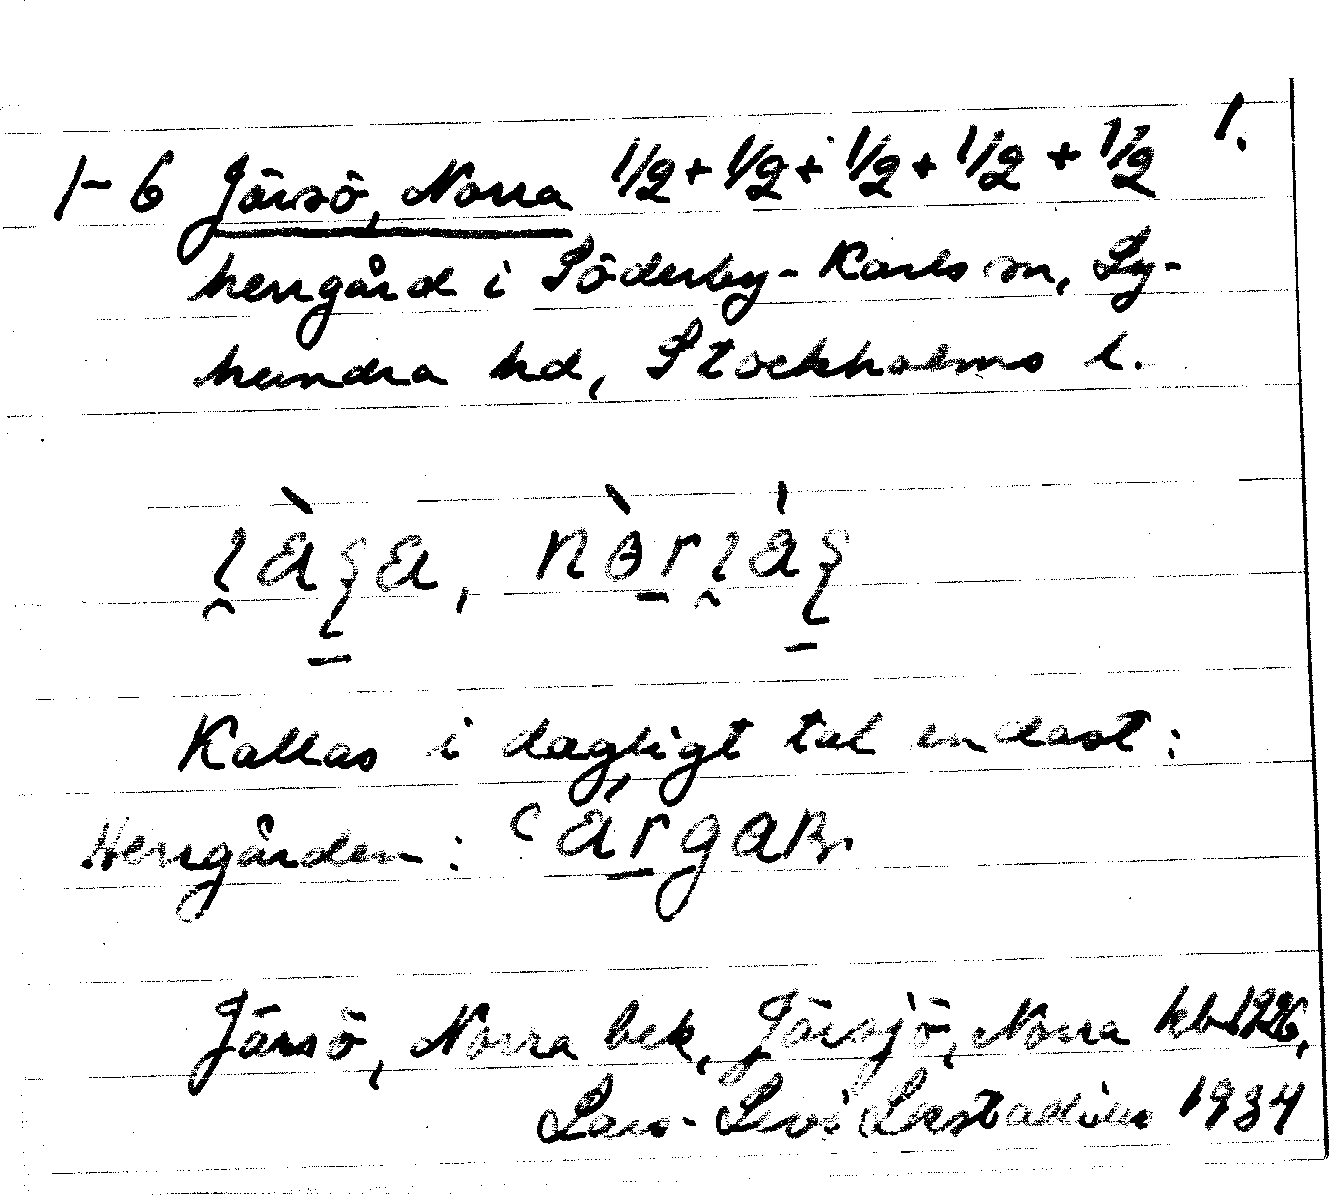 1.
1-6 Järsö, Norra 1/2 + 1/2 + 1/2 + 1/2 + 1/2
herrgård i Söderby-Karls sn, Ly-
hundra hd, Stockholms l.
Kallas i dagligt tal endast:
Herrgården:
Järsö, Norra bek, Järsjö, Norra kb 1226,
Lars-Levi Læstadius 1934